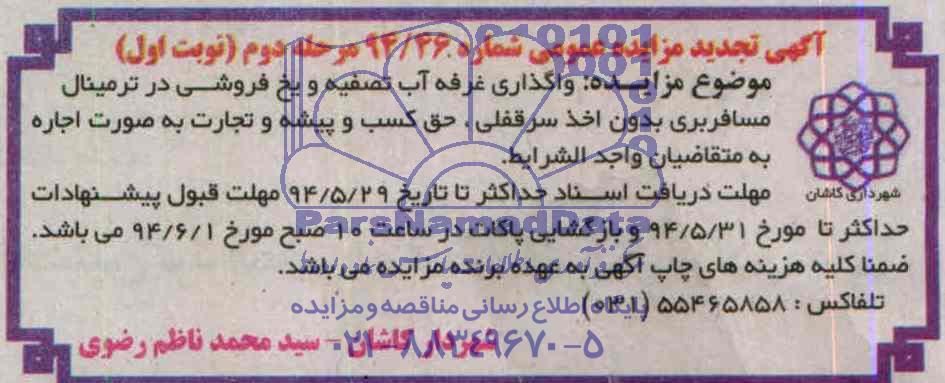 آگهی تجدید مزایده عمومی شماره ۹۴/۲۶ مرحله دوم (نوبت اول)
موضوع مزایده: واگذاری غرفه آب تصفیه و یخ فروشی در ترمینال
مسافربری بدون اخذ سرقفلی، حق کسب و پیشه و تجارت به صورت اجاره
به متقاضیان واجد الشرایط.
شهرداری کاشان
مهلت دریافت اسناد حداکثر تا تاریخ ۹۴/۵/۲۹ مهلت قبول پیشنهادات
حداکثر تا مورخ ۹۴/۵/۳۱ و بازگشایی پاکات در ساعت ۱۰ صبح مورخ ۹۴/۶/۱ می باشد.
ParsNamadData
ضمنا کلیه هزینه های چاپ آگهی به عهده برنده مزایده می باشد.
تلفاکس: ۵۵۴۶۵۸۵۸ (۰۳۱)
پایگاه اطلاع رسانی مناقصه و مزایده
شهردار کاشان - سید محمد ناظم رضوی
۰۲۱-۸۸۳۴۹۶۷۰-۵